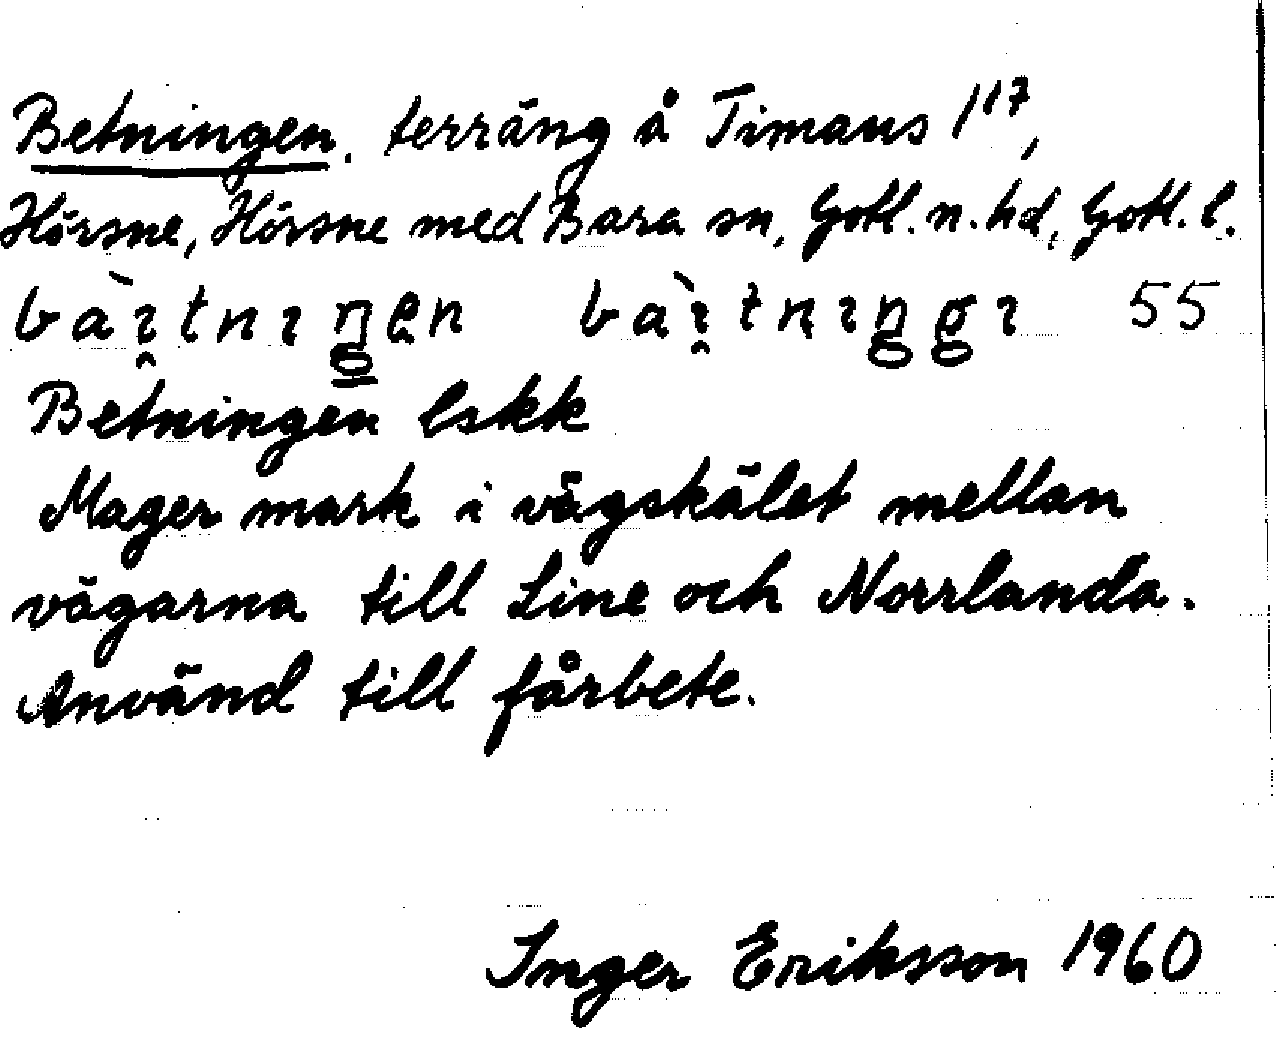 Betningen. terräng å Timans 1¹⁷,
Hörsne, Hörsne med Bara sn, Gotl. n. hd, Gotl. l.
55
Betningen lskk
Mager mark i vägskälet mellan
vägarna till Line och Norrlanda.
Använd till fårbete.
Inger Eriksson 1960